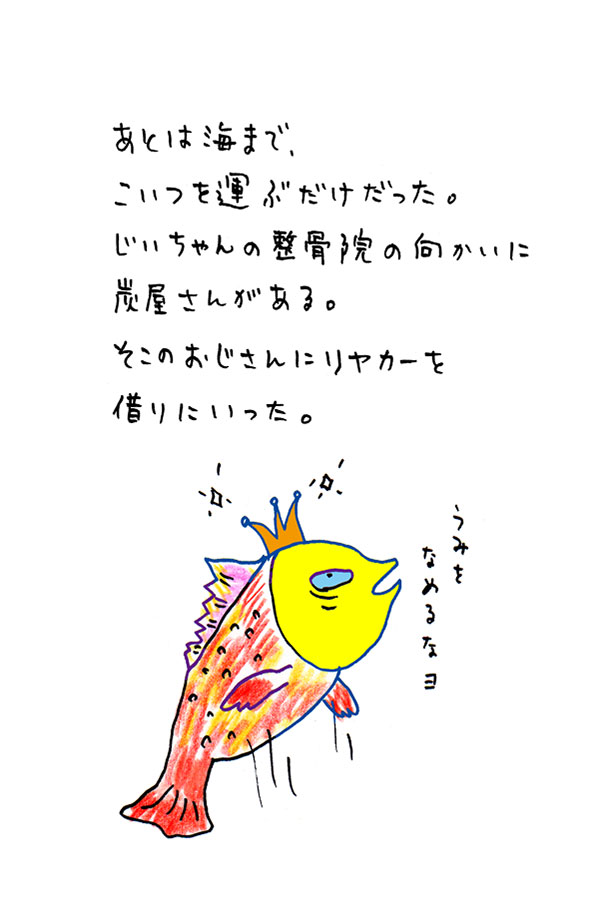 あとは海まで、
こいつを運ぶだけだった。
じいちゃんの整骨院の向かいに
炭屋さんがある。
そこのおじさんにリヤカーを
借りにいった。
うみを
なめるなヨ